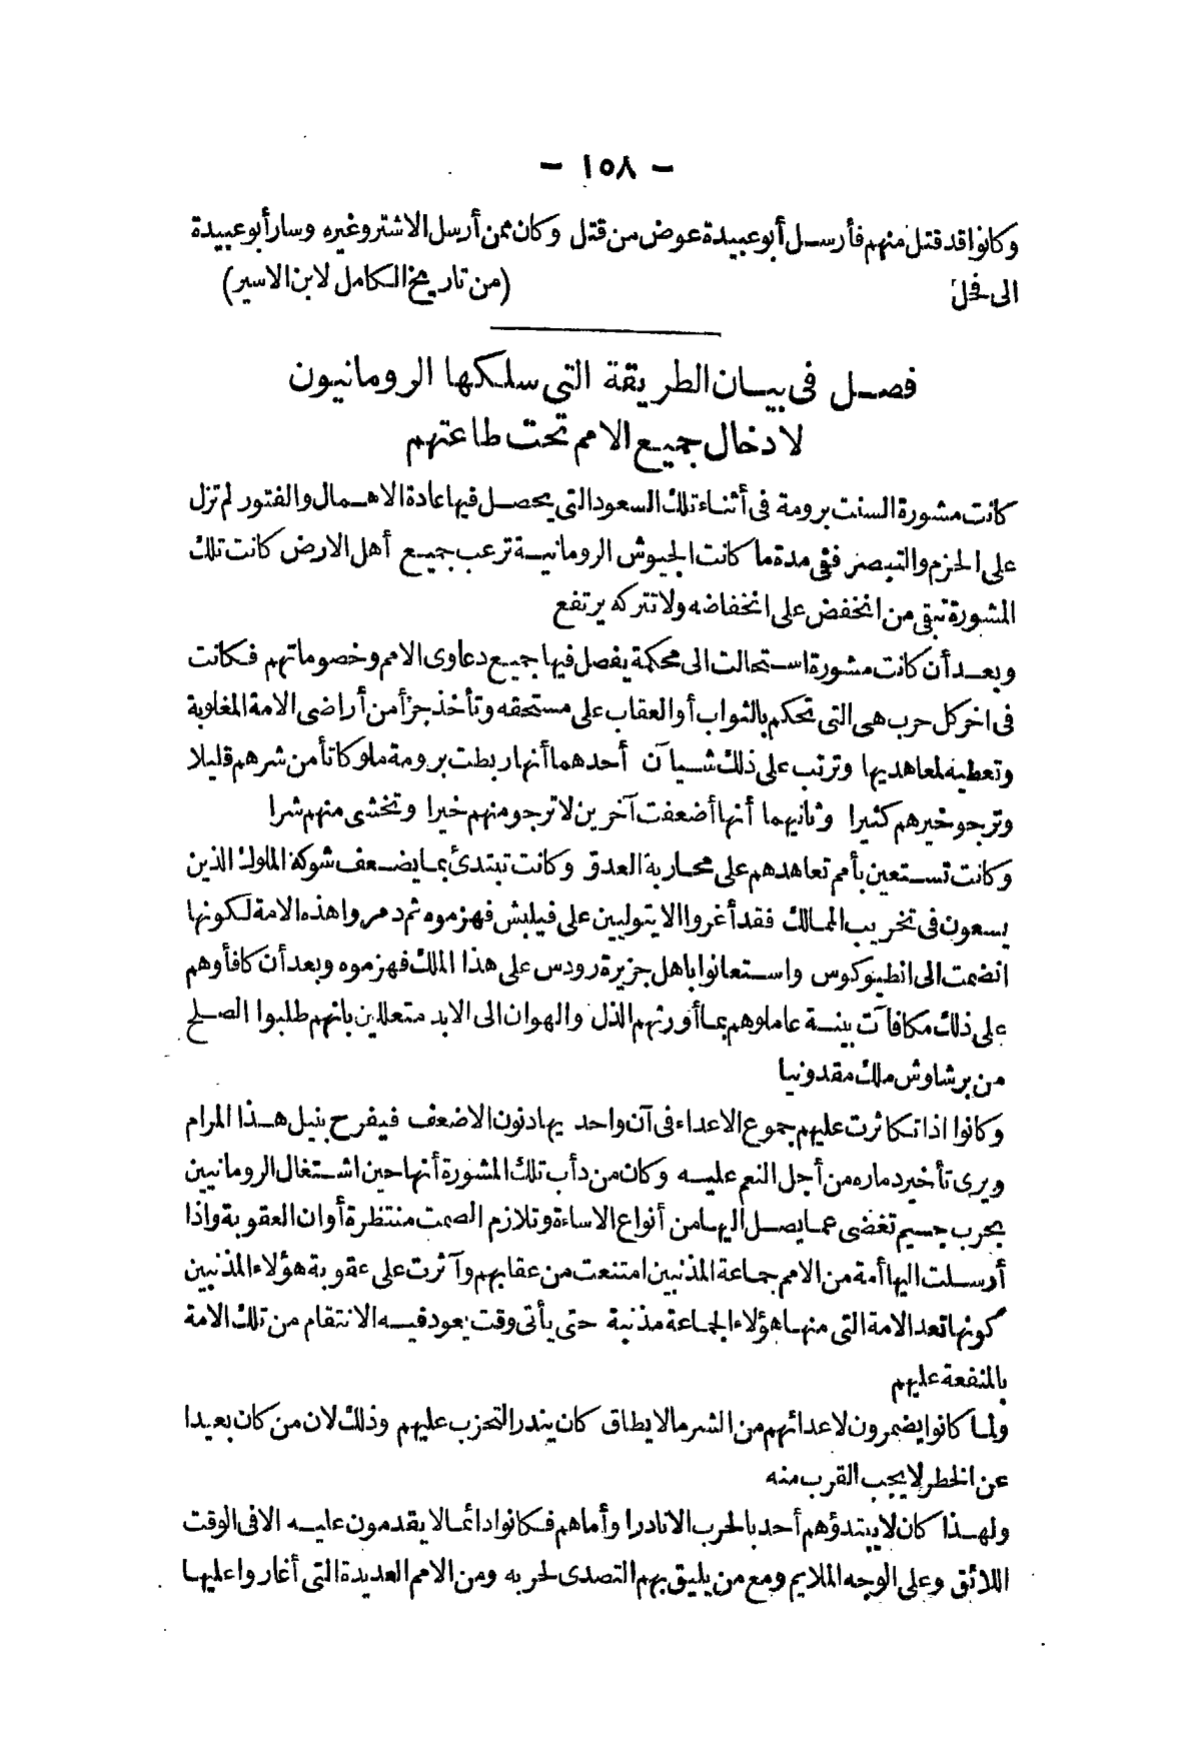 - ١٥٨ -
وكانوا قد قتل منهم فأرسل أبو عبيدة عوض من قتل وكان ممن أرسل الاشتر وغيره وسار أبو عبيدة
الى فحل (من تاريخ الكامل لابن الاسير)
فصل فى بيان الطريقة التى سلكها الرومانيون
لادخال جميع الامم تحت طاعتهم
كانت مشورة السنت برومة فى أثناء تلك السعود التى يحصل فيها عادة الاهمال والفتور لم تزل
على الحزم والتبصر ففى مدة ما كانت الجيوش الرومانية ترعب جميع أهل الارض كانت تلك
المشورة تبقى من انخفض على انخفاضه ولا تتركه يرتفع
وبعد أن كانت مشورة استحالت الى محكمة يفصل فيها جميع دعاوى الامم وخصوماتهم فكانت
فى اخر كل حرب هى التى تحكم بالثواب أو العقاب على مستحقه وتأخذ جزأ من أراضى الامة المغلوبة
وتعطيه لمعاهديها وترتب على ذلك شيآن أحدهما أنها ربطت برومة ملوكا تأمن شرهم قليلا
وترجو خيرهم كثيرا وثانيهما أنها أضعفت آخرين لا ترجو منهم خيرا وتخشى منهم شرا
وكانت تستعين بأمم تعاهدهم على محاربة العدو وكانت تبتدئ بما يضعف شوكة الملوك الذين
يسعون فى تخريب الممالك فقد أغروا الايتوليين على فيلبش فهزموه ثم دمروا هذه الامة لكونها
انضمت الى انطيوكوس واستعانوا باهل جزيرة رودس على هذا الملك فهزموه وبعد أن كافأوهم
على ذلك مكافآت بينة عاملوهم بما أورثهم الذل والهوان الى الابد متعللين بانهم طلبوا الصلح
من برشاوش ملك مقدونيا
وكانوا اذا تكاثرت عليهم جموع الاعداء فى آن واحد يهادنون الاضعف فيفرح بنيل هذا المرام
ويرى تأخير دماره من أجل النعم عليه وكان من دأب تلك المشورة أنها حين اشتغال الرومانيين
بحرب جسيم تغضى عما يصل اليها من أنواع الاساءة وتلازم الصمت منتظرة أوان العقوبة واذا
أرسلت اليها أمة من الامم جماعة المذنبين امتنعت من عقابهم وآثرت على عقوبة هؤلاء المذنبين
كونها تعد الامة التى منها هؤلاء الجماعة مذنبة حتى يأتى وقت يعود فيه الانتقام من تلك الامة
بالمنفعة عليهم
ولما كانوا يضمرون لاعدائهم من الشر مالا يطاق كان يندر التحزب عليهم وذلك لان من كان بعيدا
عن الخطر لا يحب القرب منه
ولهذا كان لا يبتدؤهم أحد بالحرب الا نادرا وأما هم فكانوا دائما لا يقدمون عليه الا فى الوقت
اللائق وعلى الوجه الملايم ومع من يليق بهم التصدى لحربه ومن الامم العديدة التى أغاروا عليها